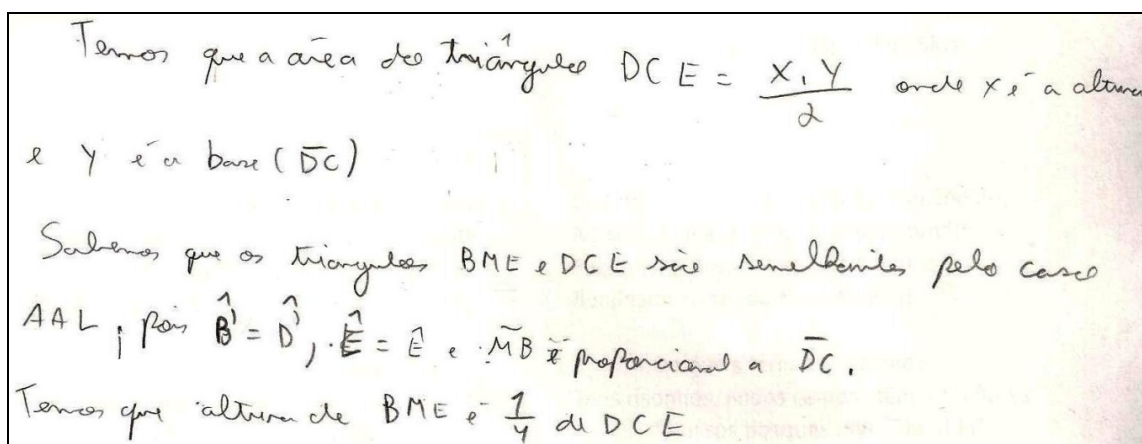 Temos que a área do triângulo DCE = X.Y/2 onde x é a altura
e Y é a base (DC)
Sabemos que os triangulos BME e DCE são semelhantes pelo caso
AAL, pois B̂ = D̂, Ê = Ê e MB é proporcional a DC.
Temos que altura de BME é 1/4 de DCE